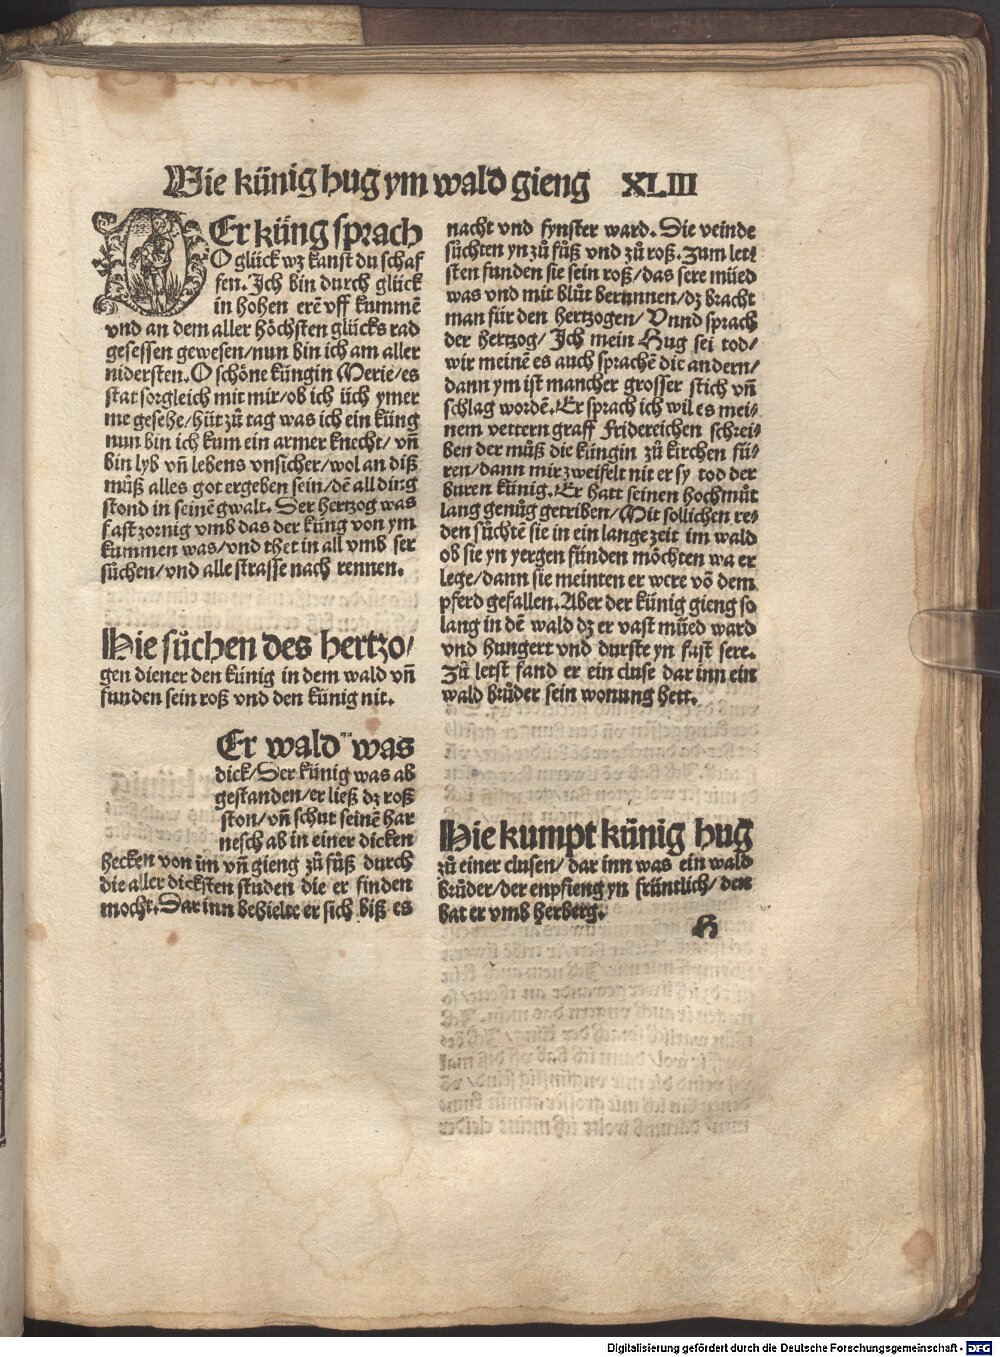 Wie künig hug ym wald gieng XLIII
DEr küng sprach
O glück wz kanst du schaf
fen. Ich bin durch glück
in hohen erē vff kummē
vnd an dem aller höchsten glücks rad
gesessen gewesen/nun bin ich am aller
nidersten. O schöne küngin Merie/es
stat sorgleich mit mir/ob ich üch ymer
me gesehe/hüt zů tag was ich ein küng
nun bin ich kum ein armer knecht/vn̄
bin lyb vn̄ lebens vnsicher/wol an diß
můß alles got ergeben sein/dē all ding
stond in seinē gwalt. Der hertzog was
fast zornig vmb das der küng von ym
kummen was/vnd thet in all vmb ser
sůchen/vnd alle strasse nach rennen.
Hie sůchen des hertzo/
gen diener den künig in dem wald vn̄
funden sein roß vnd den künig nit.
Er wald was
dick/Der künig was ab
gestanden/er ließ dz roß
ston/vn̄ schut seinē har
nesch ab in einer dicken
hecken von im vn̄ gieng zů fůß durch
die aller dicksten studen die er finden
mocht. Dar inn behielte er sich biß es
nacht vnd fynster ward. Die veinde
sůchten yn zů fůß vnd zů roß. Zum let/
sten funden sie sein roß/das sere müed
was vnd mit blůt berunnen/dz bracht
man für den hertzogen/Vnnd sprach
der hertzog/Ich mein Hug sei tod/
wir meinē es auch sprachē die andern/
dann ym ist mancher grosser stich vn̄
schlag wordē. Er sprach ich wil es mei/
nem vettern graff Fridereichen schrei/
ben der můß die küngin zů kirchen fü/
ren/dann mir zweifelt nit er sy tod der
buren künig. Er hatt seinen hochmůt
lang genůg getriben/Mit sollichen re/
den sůchtē sie in ein lange zeit im wald
ob sie yn yergen fünden möchten wa er
lege/dann sie meinten er were vō dem
pferd gefallen. Aber der künig gieng so
lang in dē wald dz er vast müed ward
vnd hungert vnd durste yn fast sere.
Zů letst fand er ein cluse dar inn ein
wald brůder sein wonung hett.
Hie kumpt künig hug
zů einer clusen/dar inn was ein wald
brůder/der enpfieng yn früntlich/den
bat er vmb herberg.
H
Digitalisierung gefördert durch die Deutsche Forschungsgemeinschaft - DFG